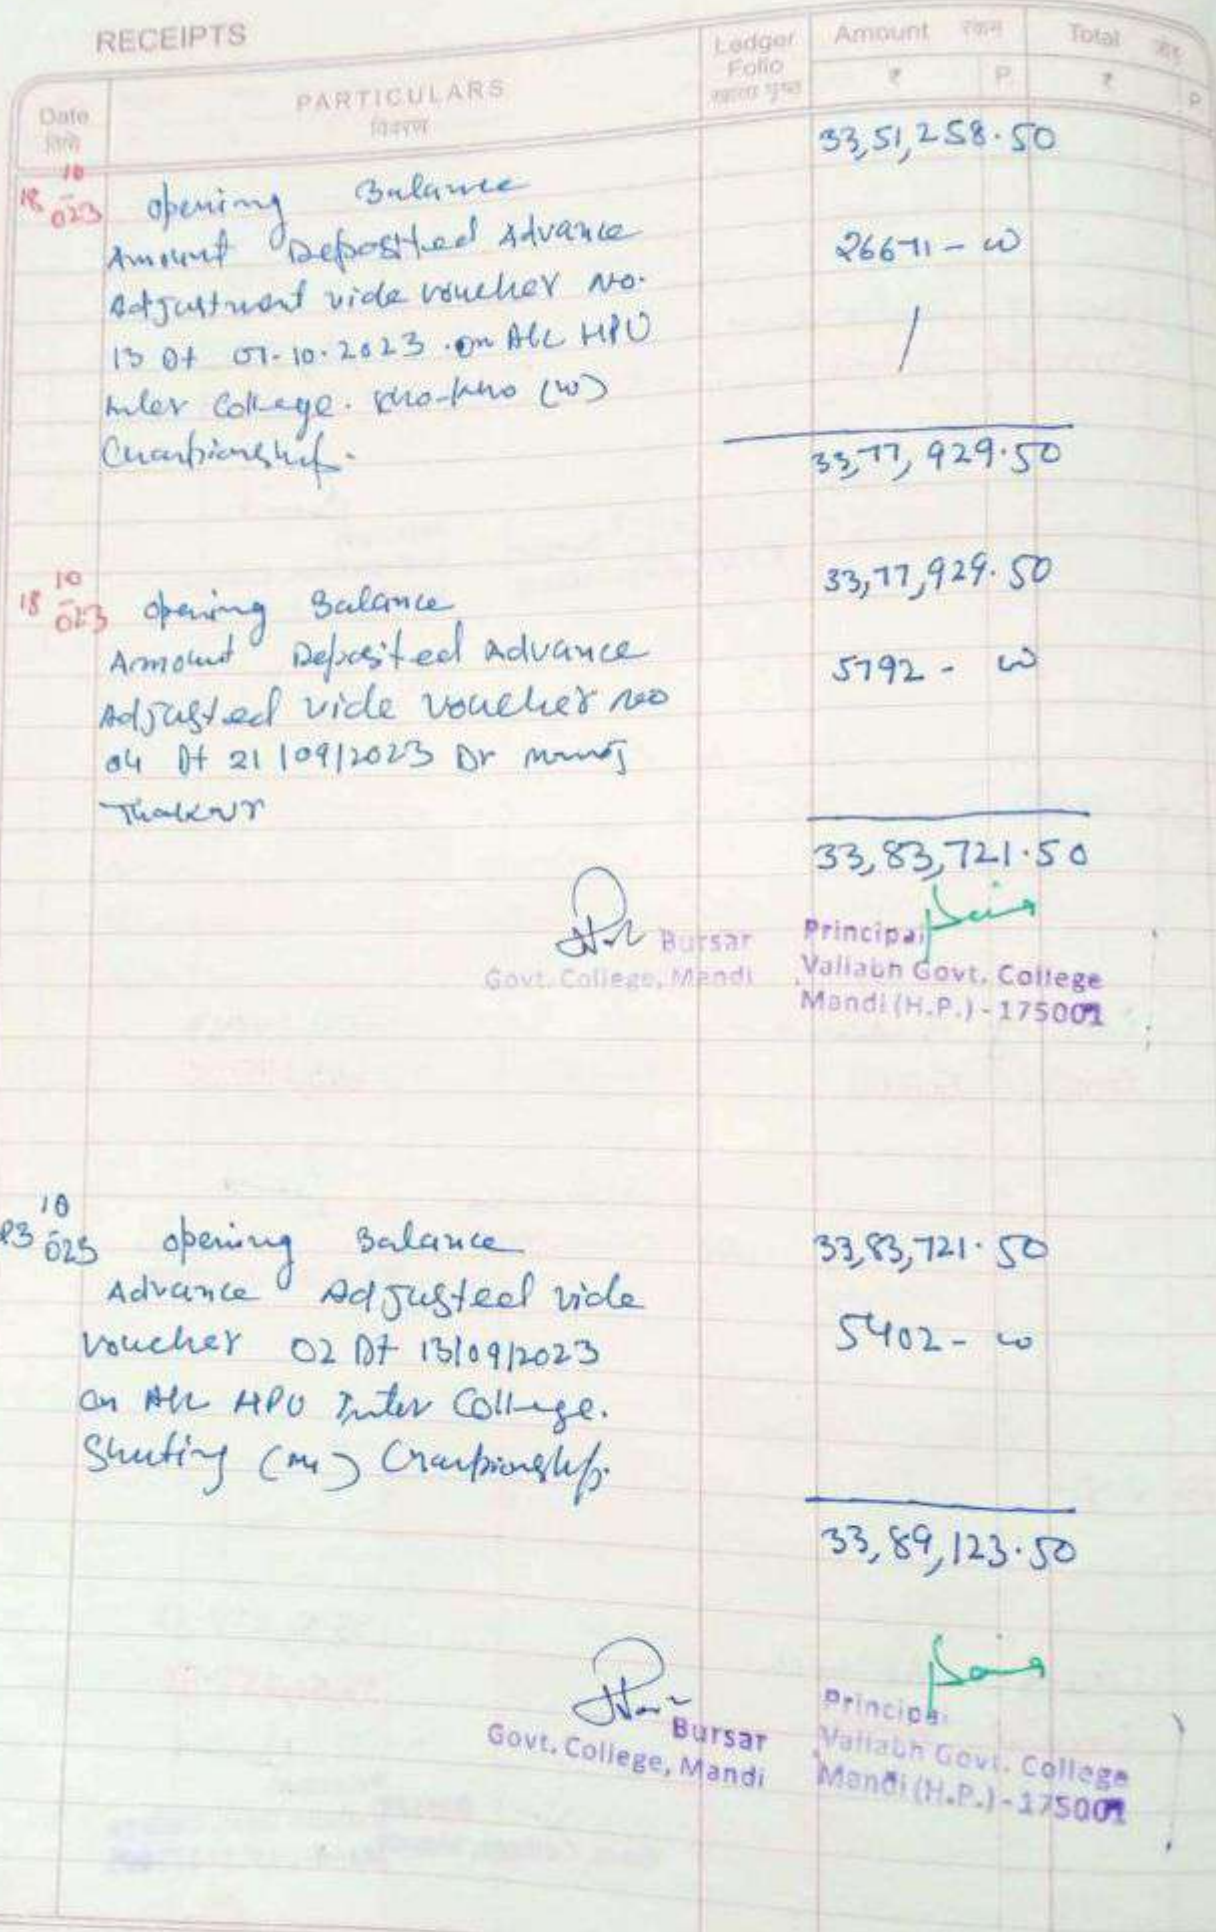 RECEIPTS
Date
PARTICULARS
विवरण
Ledger
Folio
Amount रकम
Total जोड़
₹ P. ₹ P.
33,51,258.50
18 10/023 opening Balance
Amount Deposited Advance 26671-00
Adjustment vide voucher No.
13 Dt 07-10-2023 on A/c HPU
Inter College. Kho-Kho (W)
Championship.
33,77,929.50
18 10/023 opening Balance 33,77,929.50
Amount Deposited Advance 5792-00
Adjusted vide voucher no
04 Dt 21/09/2023 Dr Manoj
Thakur
33,83,721.50
Bursar
Govt. College, Mandi
Principal
Vallabh Govt. College
Mandi (H.P.) - 175001
23 10/023 opening Balance 33,83,721.50
Advance Adjusteed vide
voucher 02 Dt 13/09/2023 5402-00
on A/c HPU Inter College.
Shuting (M) Championship.
33,89,123.50
Bursar
Govt. College, Mandi
Principal
Vallabh Govt. College
Mandi (H.P.) - 175001